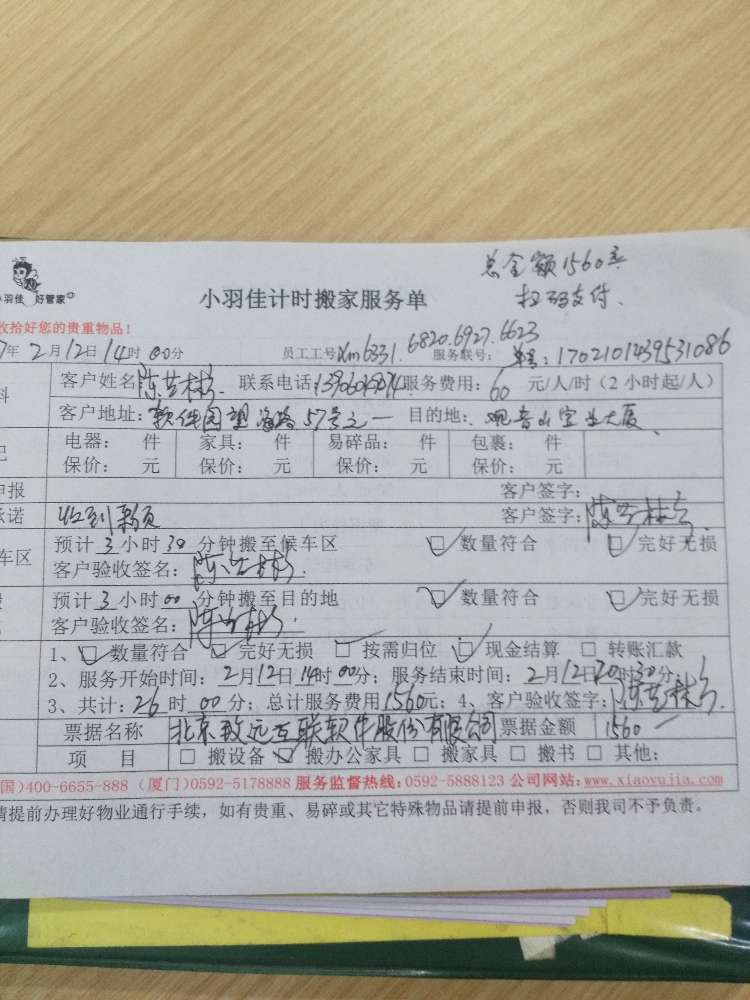 总金额1560元
扫码支付、
小羽佳 好管家
小羽佳计时搬家服务单
收拾好您的贵重物品!
7年2月12日14时00分 员工工号xm6331.6820.6927.6623 服务联号: 单号:1702101439531086
料 客户姓名 联系电话: 服务费用:60元/人/时(2小时起/人)
客户地址:软件园望海路57号之一 目的地:观音山宝业大厦
电器: 件 家具: 件 易碎品: 件 包裹: 件
保价: 元 保价: 元 保价: 元 保价: 元
申报 客户签字:
承诺 收到 客户签字:
车区 预计3小时30分钟搬至候车区 数量符合 完好无损
客户验收签名:
预计3小时00分钟搬至目的地 数量符合 完好无损
客户验收签名:
1、数量符合 完好无损 按需归位 现金结算 转账汇款
2、服务开始时间:2月12日14时00分;服务结束时间:2月12日20时30分;
3、共计:26时00分;总计服务费用1560元;4、客户验收签字:
票据名称 北京致远互联软件股份有限公司 票据金额 1560
项 目 搬设备 搬办公家具 搬家具 搬书 其他:
国)400-6655-888 (厦门)0592-5178888 服务监督热线:0592-5888123 公司网站:www.xiaoyujia.com
请提前办理好物业通行手续,如有贵重、易碎或其它特殊物品请提前申报,否则我司不予负责。